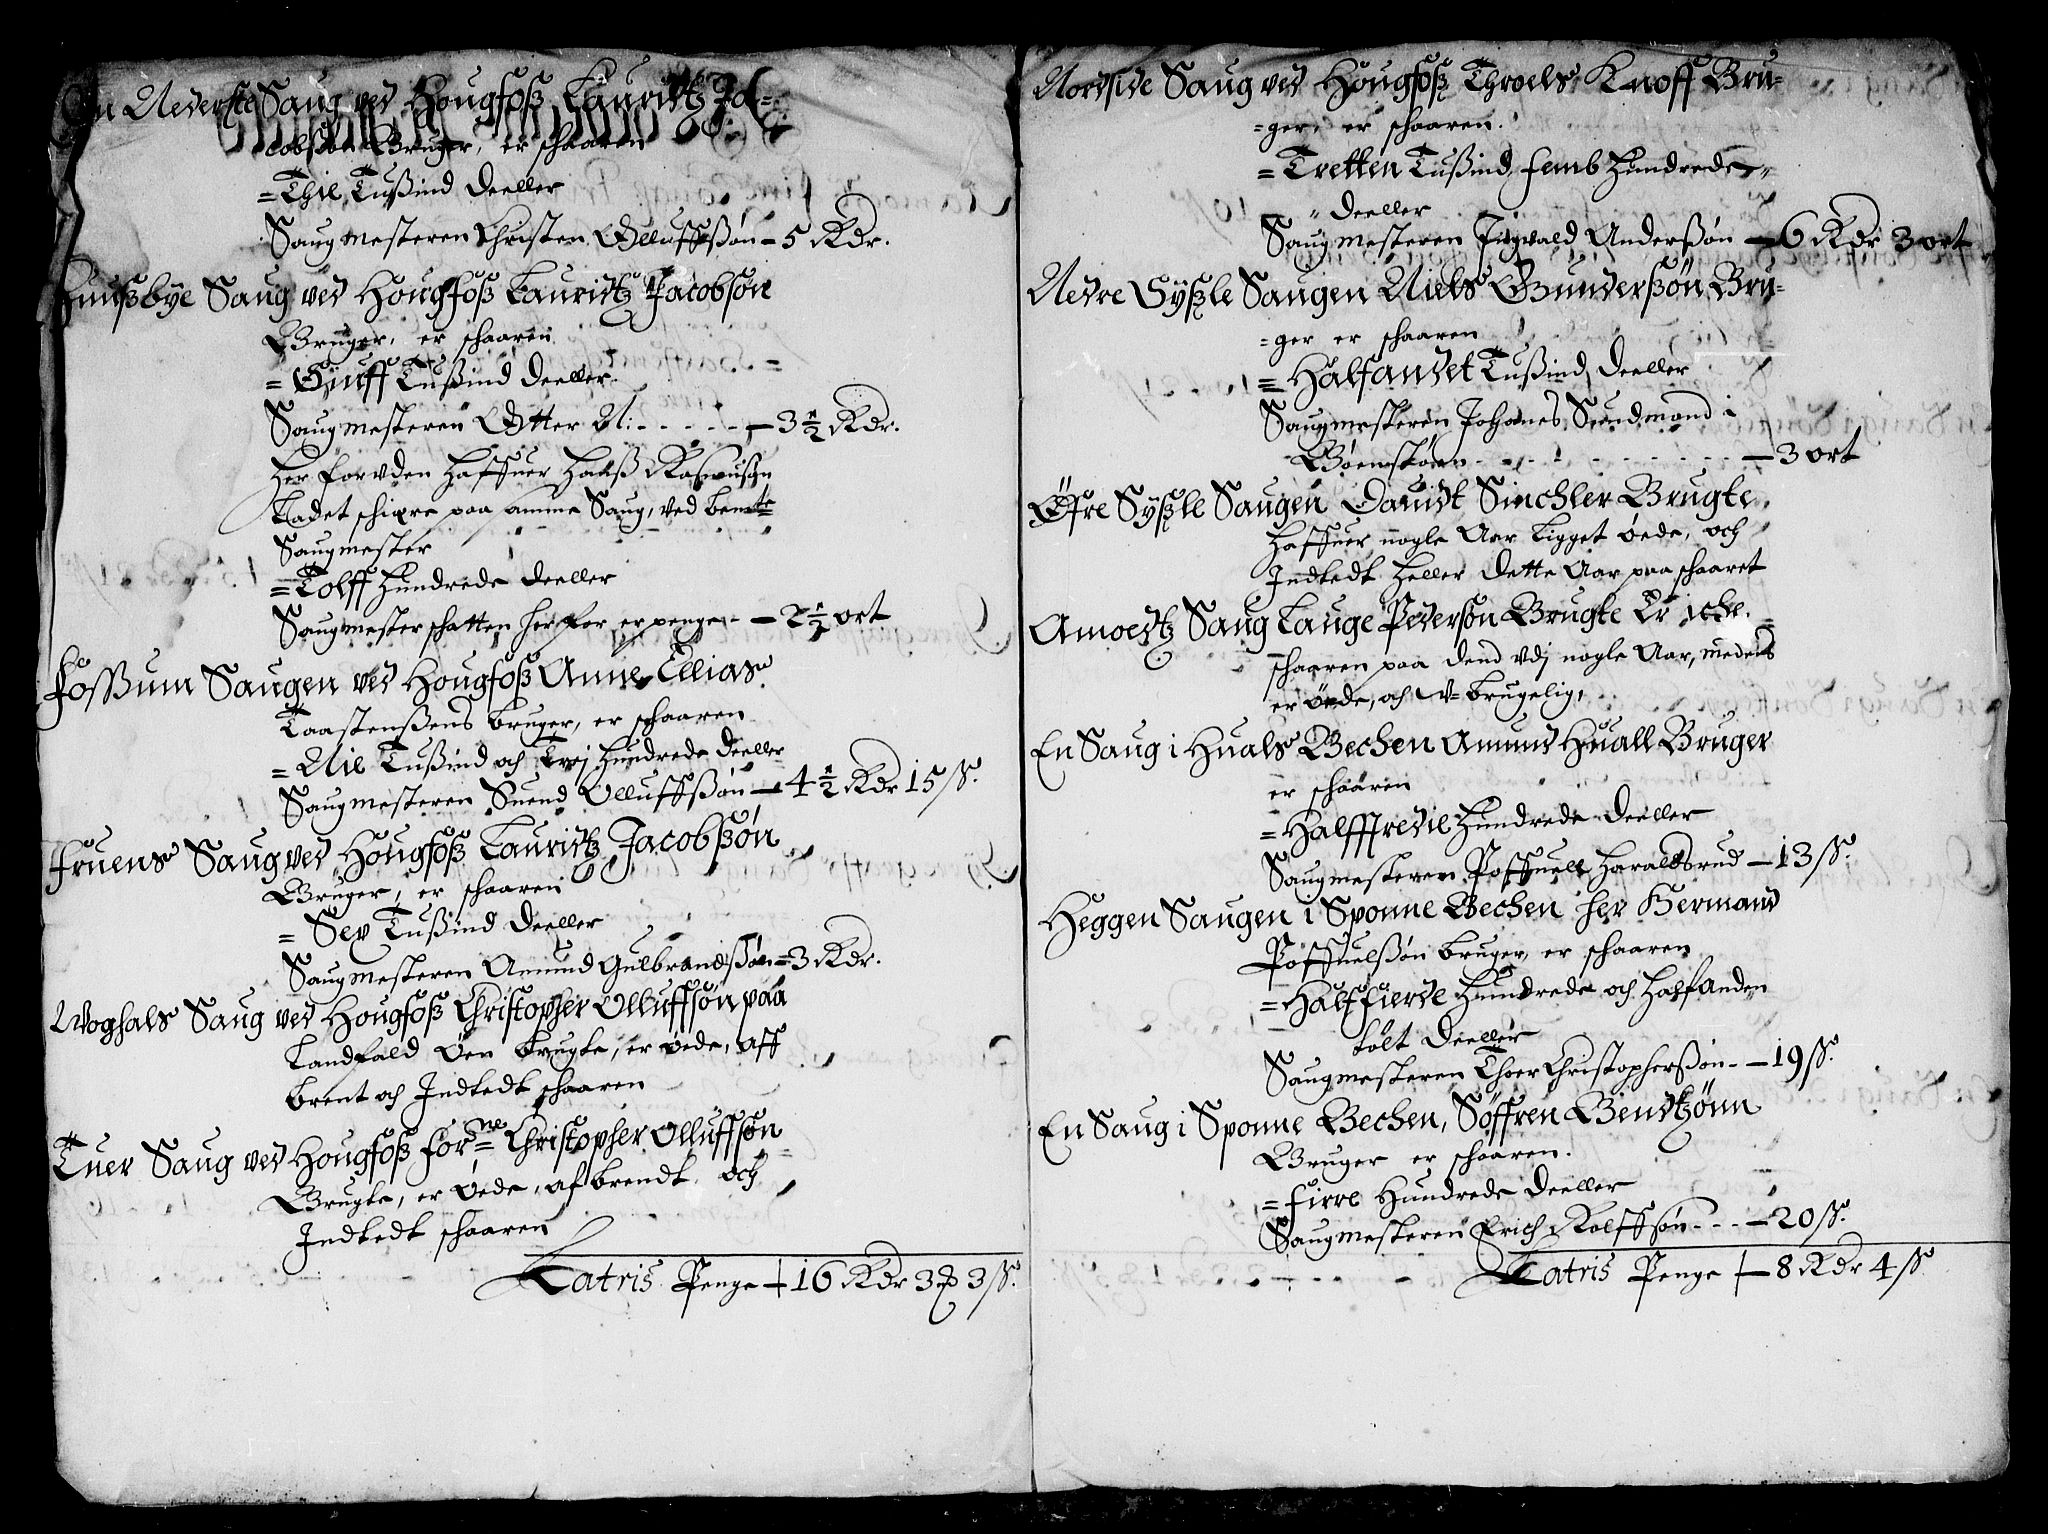 En Nederste Saug ved Hougfoß Lauridtz Ja=
cobsøn Bruger, er schaaren
=Thie Tußind Deeller
Saugmesteren Christen Olluffßøn – 5 Rdr.
Huußbye Saug ved Hougfoß Lauridtz Jacobsøn
Bruger, er schaaren
= Siuff Tußind Deeller.
Saugmesteren Otter N: - - - - - – 3½ Rdr.
Her forvden Haffuer Hanß Rasmußn
Ladet schiære paa samme Saug, ved bemte
Saugmester
=Tolff Hundrede Deeller
Saugmester schatten herfor er penge - – 2½ ort
Fossum Saugen ved Hougfoß Anne Ellias
Taastensßens bruger, er schaaren
= Nie Tußind och Trej Hundrede Deeller
Saugmesteren Suend Olluffßøn – 4½ Rdr 15 ß.
Fruens Saug ved Hougfoß Lauridtz Jacobßøn
Bruger, er schaaren
= Sex Tußind Deeller
Saugmesteren Amund Gulbrandßøn = 3 Rdr.
Woghals Saug ved Hougfoß Christopher Olluffsøn paa
Landfald Øen brugte, er øede, aff
brent och Indtedt schaaren
Tuer Saug ved Hougfoß forne Christopher Olluffsøn
Brugte, er øede, af brendt, och
Indtedt schaaren
Latris Penge – 16 Rdr 3 ₰ 3 ß.
Nordside Saug ved Hougfoß Throels Knoff Bru=
=ger, er schaaren.
=Tretten Tußind, femb Hundrede
Deeller
Saugmesteren Jngvald Anderßøn – 6 Rdr 3 ort
Nedre Sysßle Saugen Niels Gunderßøn Bru=
=ger er schaaren
= Halfandet Tußind, Deeller
Saugmesteren Johanes Sundmand i
Bøenskoen - - - - - - - - – 3 ort
Öfre Sysßle Saugen Dauidt Sinchler Brugte
Haffuer nogle Aar ligget øede, och
Indtedt heller dette Aar paa schaaret
Amoedtz Saug Lauge Pedersøn Brugte Er iche
schaaren paa dend vdj nogle Aar, medens
er øede, och V= brugelig,
En Saug i Huals Bechen Amund Huall Bruger
er schaaren
= Halfffredie Hundrede Deeller
Saugmesteren Poffuell Haraldsrud – 13 ß.
Heggen Saugen i Sponne Bechen her Hermand
Poffuelßøn bruger, er schaaren
= Halffierde Hundrede och halfanden
tolt Deeller
Saugmesteren Thoer Christopherßøn - – 19 ß.
En Saug i Sponne Bechen, Söffren Bendtzönn
Bruger er schaaren.
= firre Hundrede Deeller
Saugmesteren Erich Rolffsøn - - - – 20 ß.
Latris Penge – 8 Rdr 4 ß